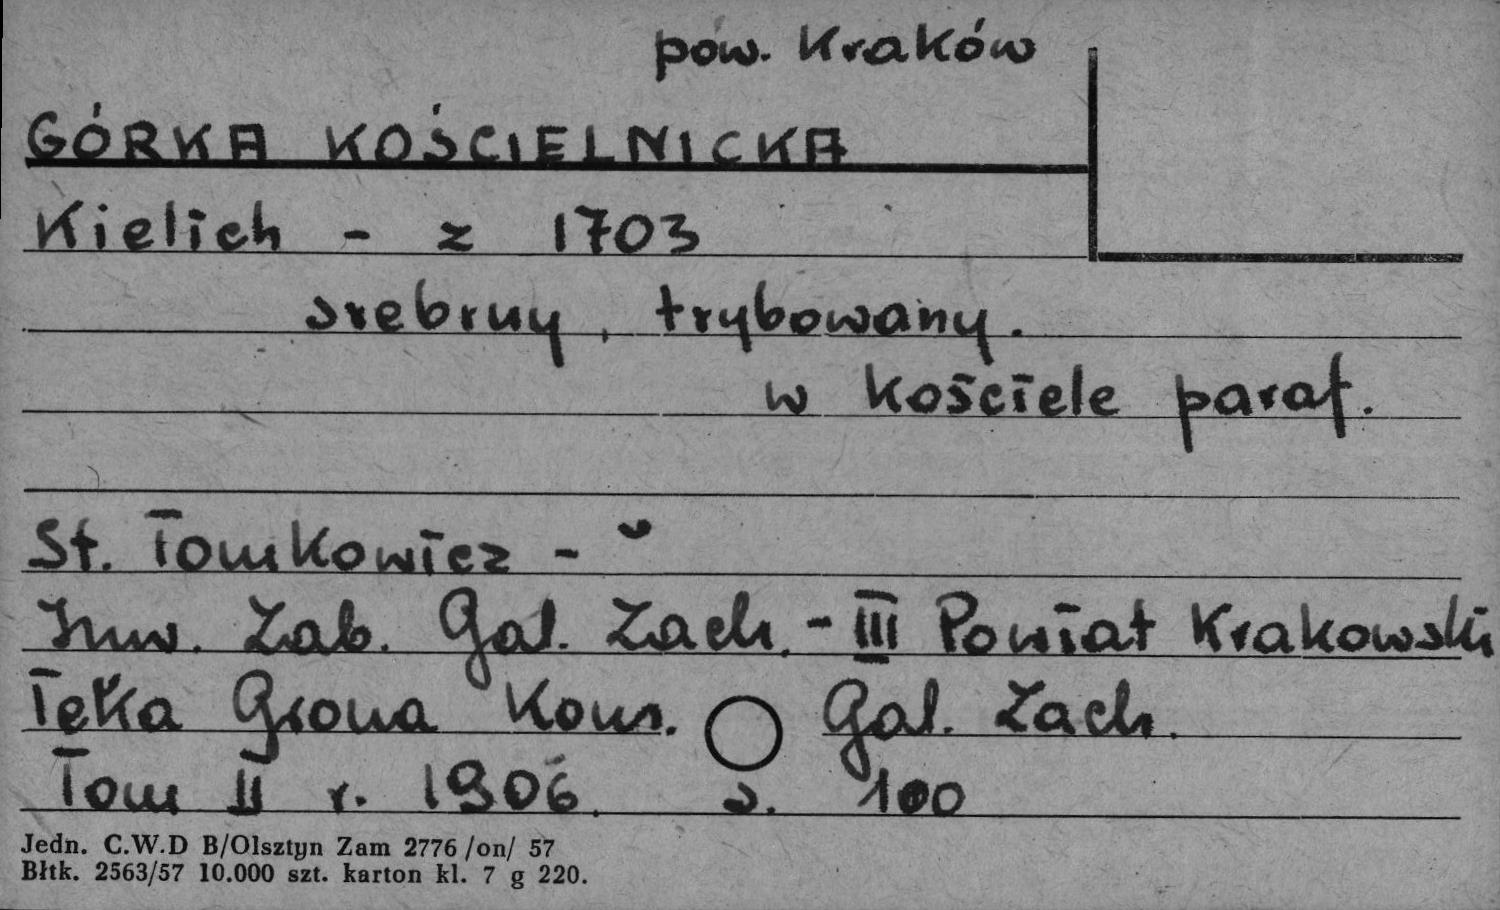 pow. Kraków
GÓRKA KOŚCIELNICKA
Kielich - z 1703
srebrny, trybowany.
w kościele paraf.
St. Tomkowicz -
Inw. Zab. Gal. Zach. - III Powiat Krakowski
Teka Grona Kons. Gal. Zach.
Tom II r. 1906. s. 100
Jedn. C.W.D B/Olsztyn Zam 2776 /on/ 57
Błtk. 2563/57 10.000 szt. karton kl. 7 g 220.